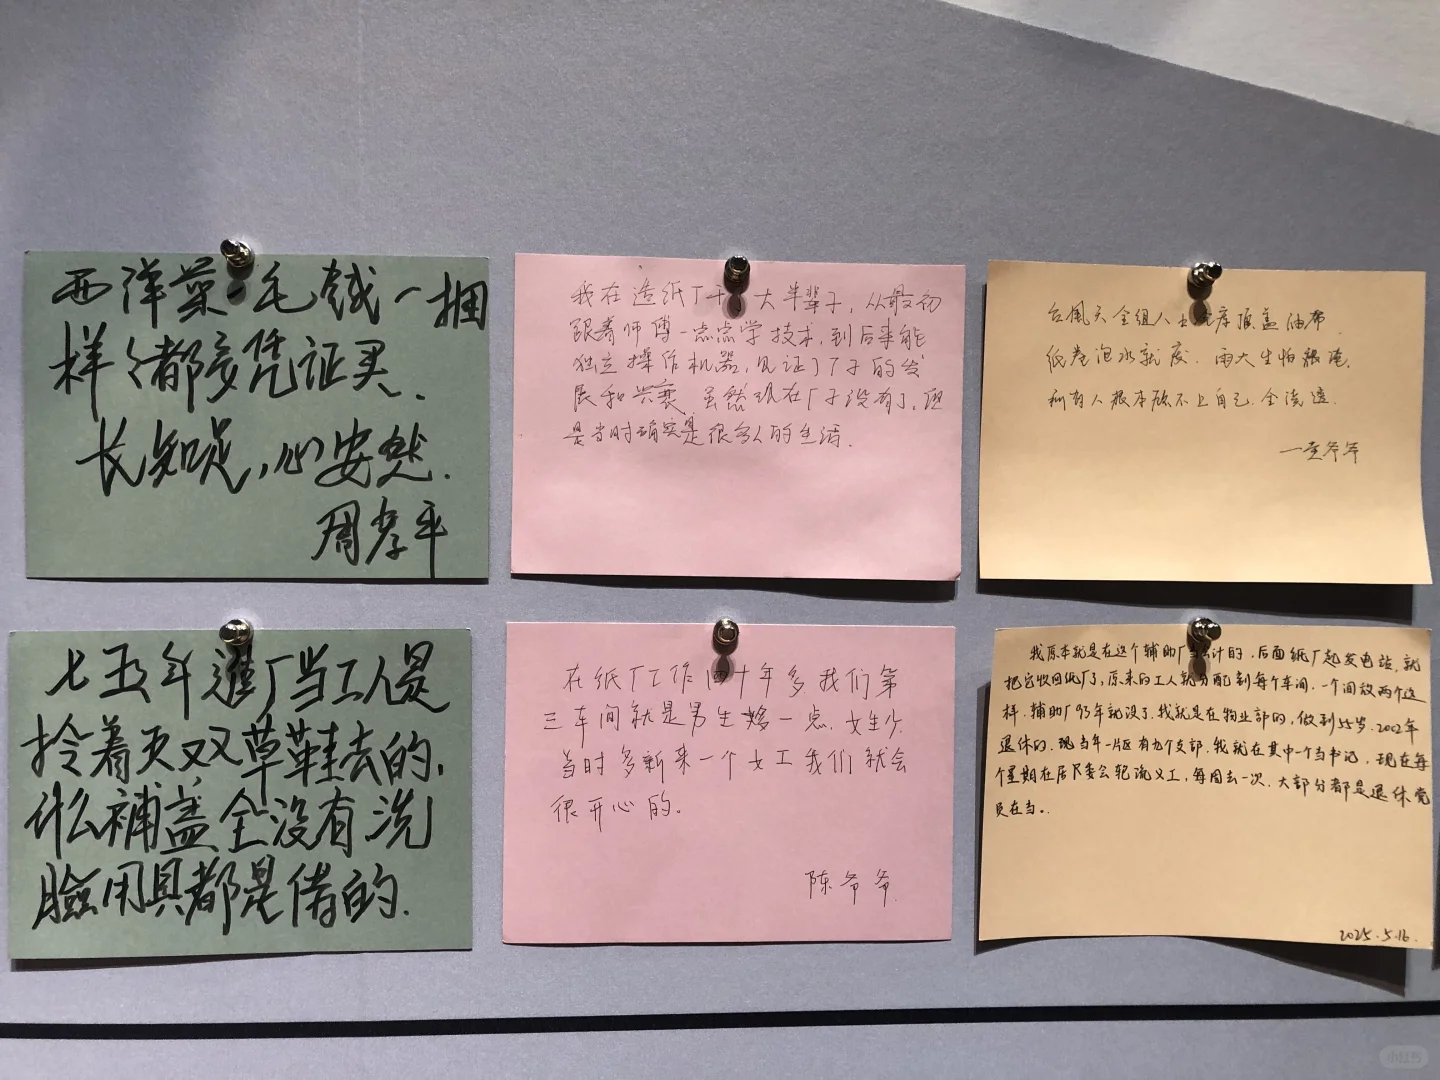 西洋菜一毛钱一捆
样〻都要凭证买.
长知足,心安然.
周孝平
我在造纸厂干 大半辈子,从最初
跟着师傅一点点学技术,到后来能
独立操作机器,见证了厂子的发
展和兴衰.虽然现在厂子没有了,但
是当时确实是很多人的生活.
台风天全组人 库顶盖油布.
纸卷泡水就废.雨大生怕
所有人根本顾不上自己.全浇透.
爷爷
七五年進厂当工人是
拎着 双草鞋去的,
什么補盖全没有洗
臉用具都是借的.
在纸厂工作四十年多我们第
三车间就是男生 一点.女生少.
当时多新来一个女工我们就会
很开心的。
陈爷爷
我原本就是在这个辅助厂当会计的.后面纸厂起发电站.就
把它收回纸厂了,原来的工人就分配到每个车间.一个间放两个这
样.辅助厂93年就没了.我就是在物业部的,做到55岁.2002年
退休的.现当年一片区有九个支部.我就在其中一个当书记.现在每
个星期在居民委会轮流义工,每周去一次.大部分都是退休党
员在当。
2025.5.16.
小红书